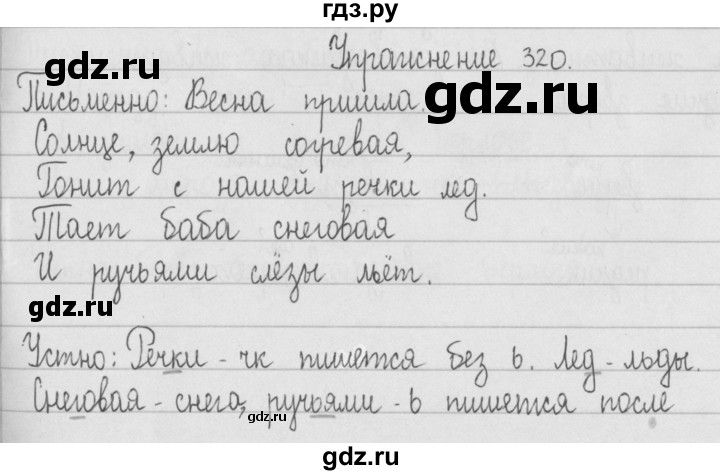 гдз.ру
Упражнение 320.
gdz.ru
gdz.ru
Письменно: Весна пришла.
Солнце, землю согревая,
Гонит с нашей речки лед.
Тает баба снеговая
И ручьями слёзы льёт.
gdz.ru
Устно: Речки - чк пишется без ь. Лед - льды.
Снеговая - снега, ручьями - ь пишется после
gdz.ru